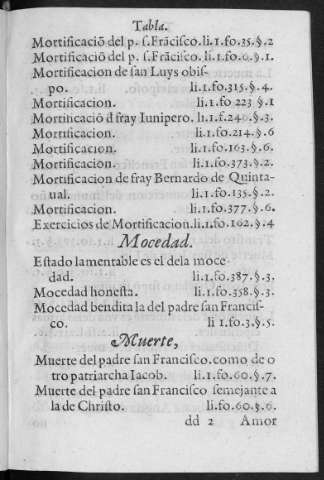 Tabla.
Mortificaciõ del p. ſ.Frãciſco. li.1.fo.35.§.2
Mortificaciõ del p. ſ.Frãciſco. li.1.fo.6.§.1.
Mortificacion de ſan Luys obiſ-
po. li.1.fo.315.§.4.
Mortificacion. li.1.fo 223 §.1
Mortificaciõ d fray Iunipero. li.1.f.240.§.3.
Mortificacion. li.1.fo.214.§.6
Mortificacion. li.1.fo.163.§.6.
Mortificacion. li.1.fo.373.§.2.
Mortificacion de fray Bernardo de Quinta-
ual. li.1.fo.135.§.2.
Mortificacion. li.1.fo.377.§.6.
Exercicios de Mortificacion.li.1.fo.162.§.4
Mocedad.
Eſtado lamentable es el dela moce
dad. li.1.fo.387.§.3.
Mocedad honeſta. li.1.fo.358.§.3.
Mocedad bendita la del padre ſan Franciſ-
co. li 1.fo.3.§.5.
Muerte,
Muerte del padre ſan Franciſco.como de o
tro patriarcha Iacob. li.1.fo.60.§.7.
Muerte del padre ſan Franciſco ſemejante a
la de Chriſto. li.fo.60.§.6.
dd 2 Amor